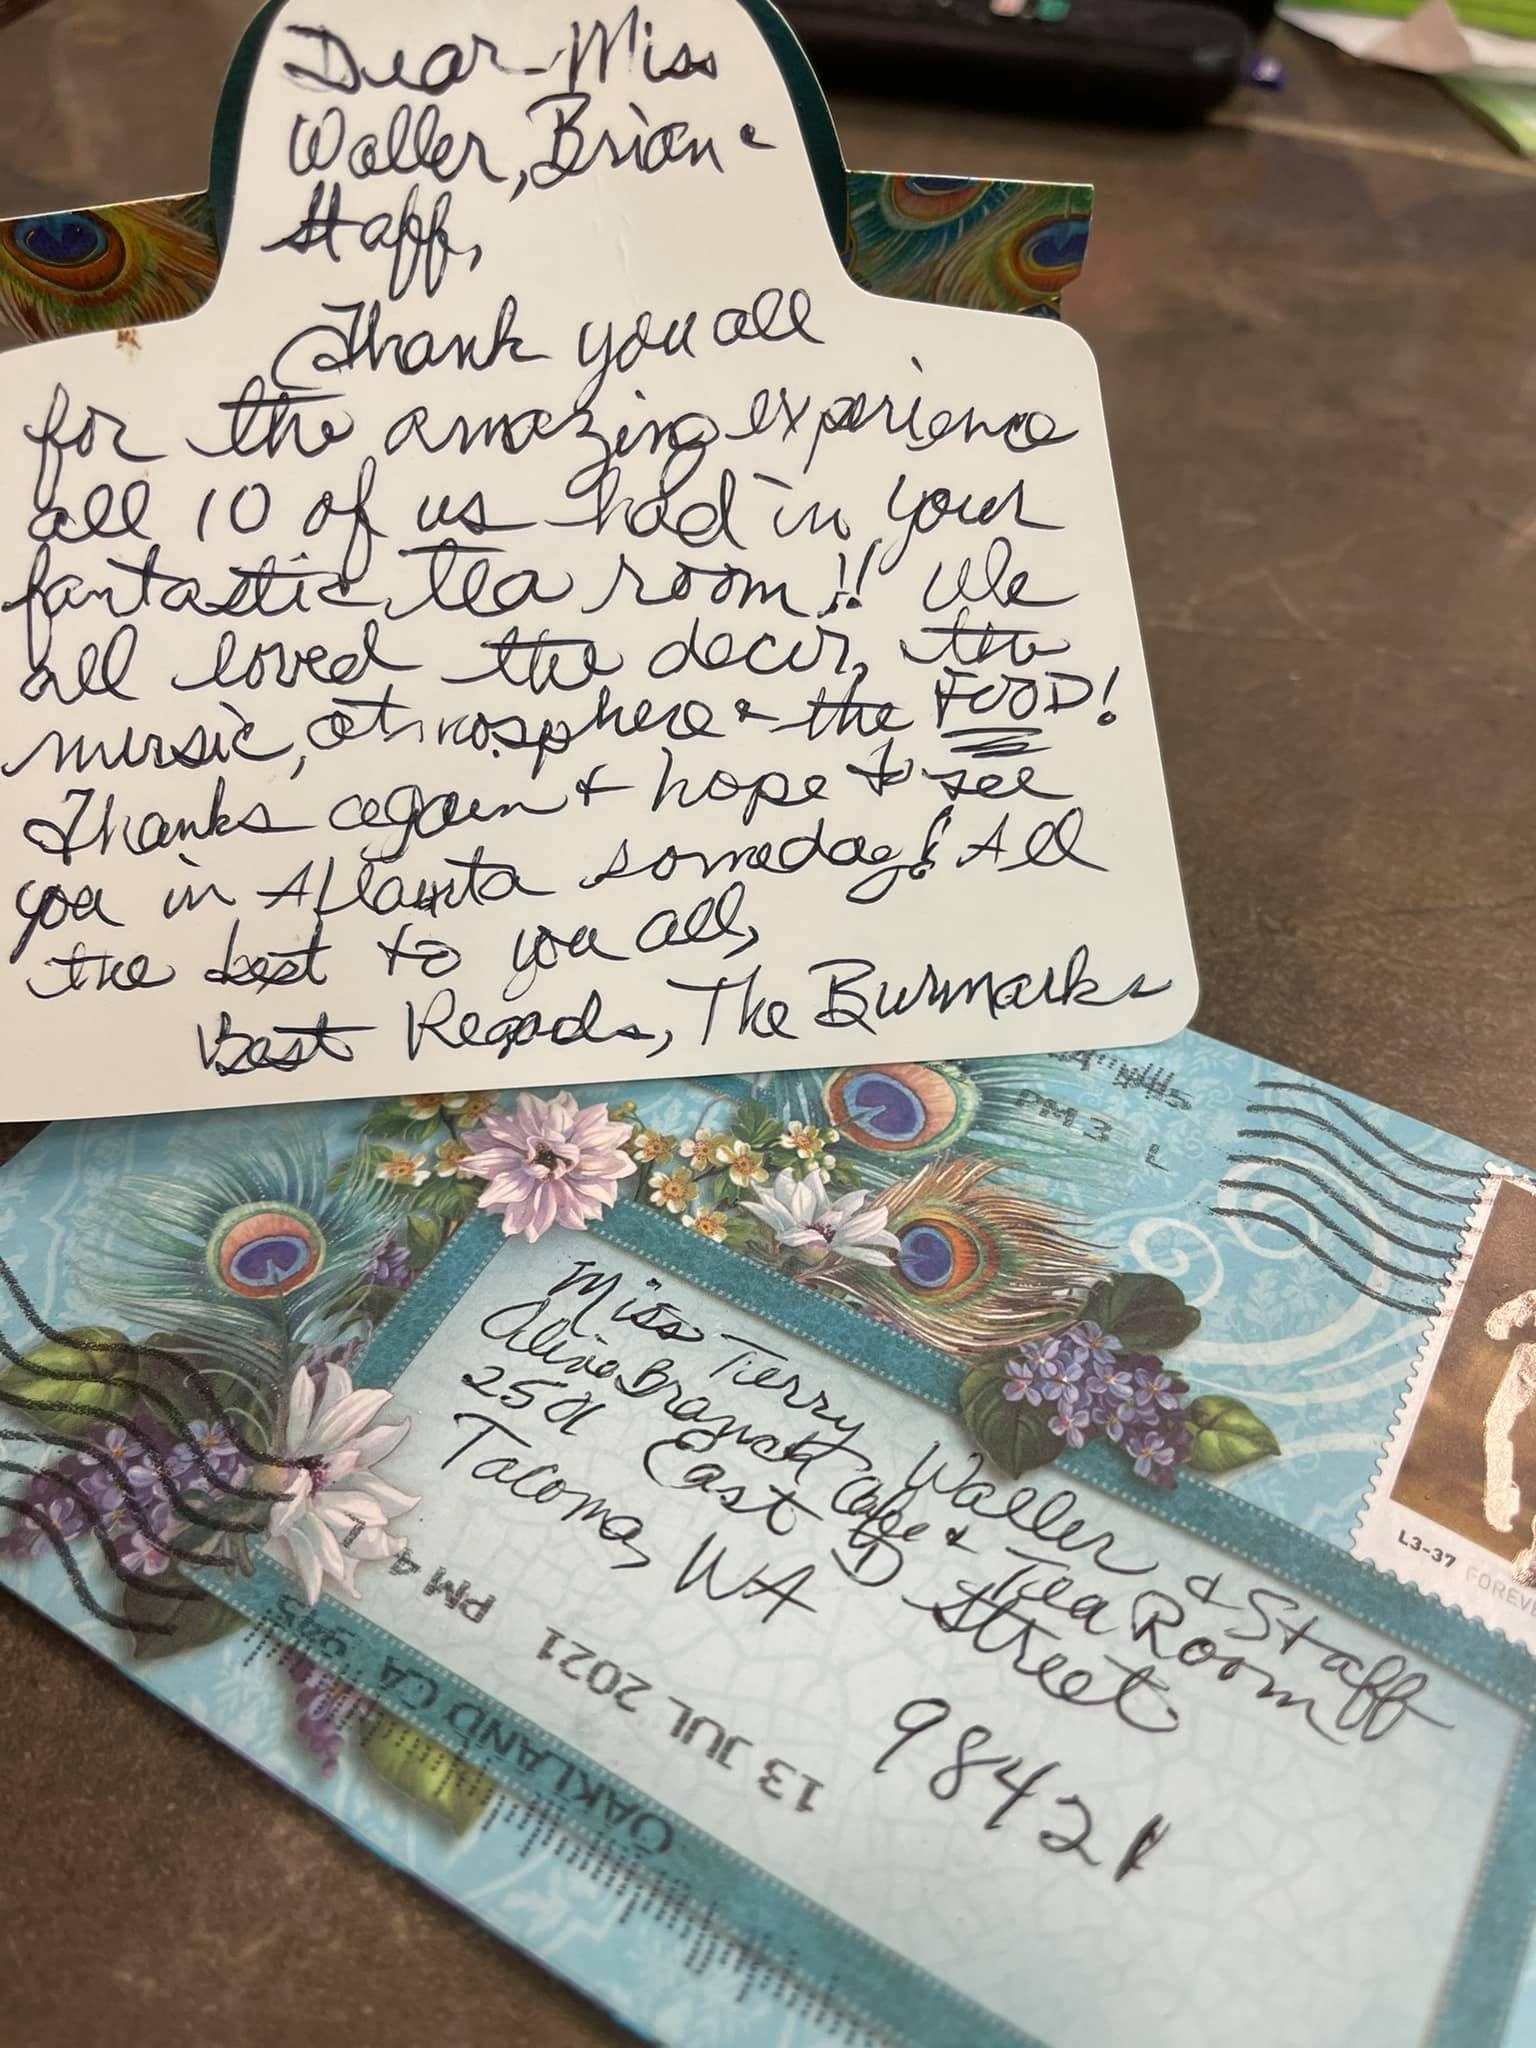 Dear Miss
Waller, Brian &
Staff,
Thank you all
for the amazing experience
all 10 of us had in your
fantastic tea room!! We
all loved the decor, the
music, atmosphere & the FOOD!
Thanks again & hope to see
you in Atlanta someday! All
the best to you all,
Best Regards, The Burmarks
PM 3 L
L3-37 FOREV
Miss Tierry Waller & Staff
Aline Branch Cafe & Tea Room
2501 East D Street
Tacoma, WA 98421
OAKLAND CA 945
13 JUL 2021 PM 4 L